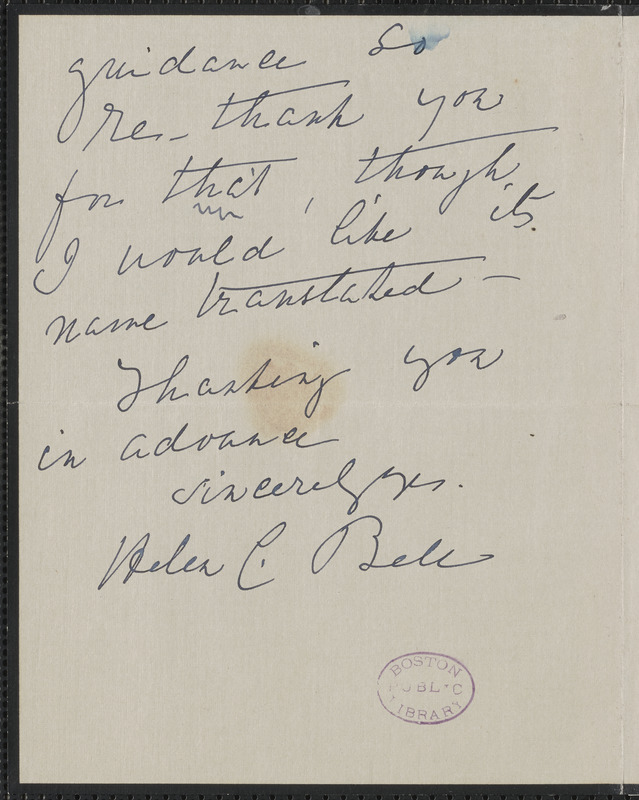 guidance So
re-thank you
for that, though
I would like its
name translated –
Thanking you
in advance
sincerely yrs.
Helen C. Bell
BOSTON
PUBLIC
LIBRARY